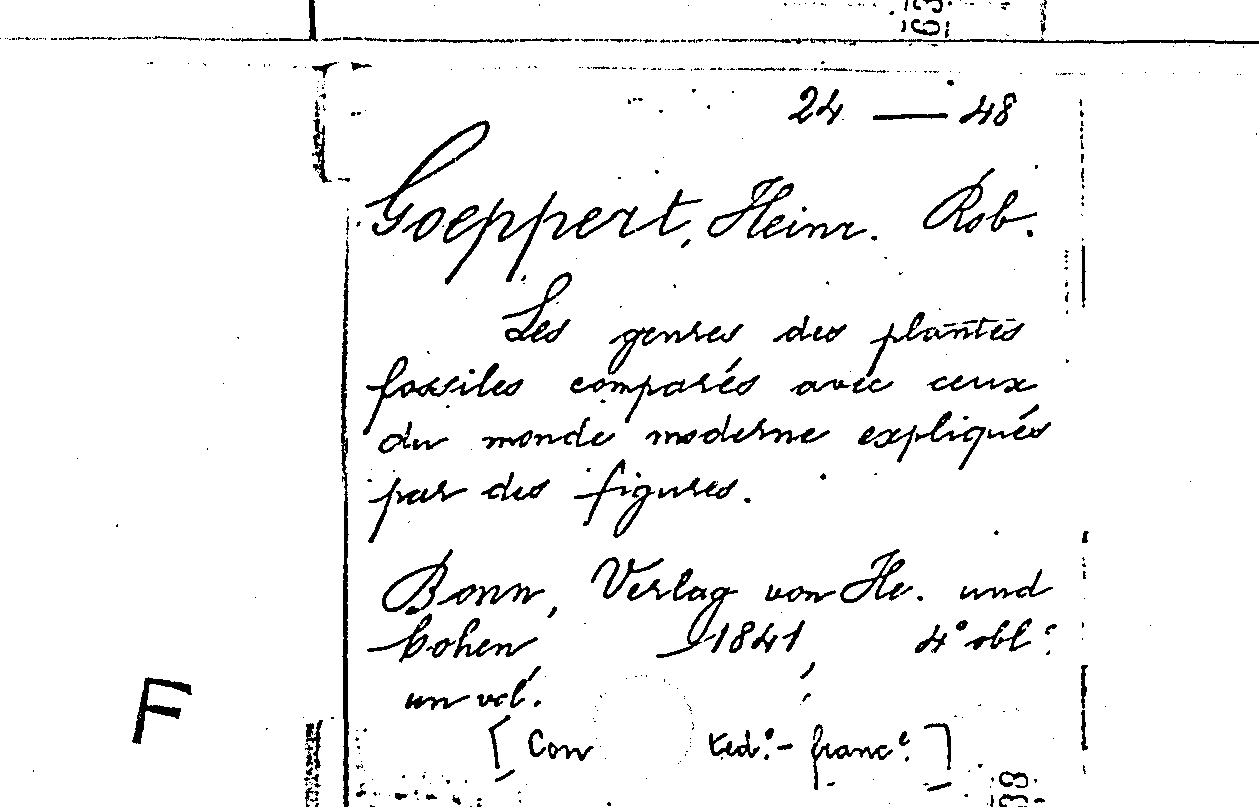 63
24 — 48
Goeppert, Heinr. Rob.
Les genres des plantes
fossiles comparés avec ceux
du monde moderne expliqués
par des figures.
Bonn, Verlag von He. und
Cohen, 1841, 4° obl.
un vol.
F
[Con ted.° - franc.e]